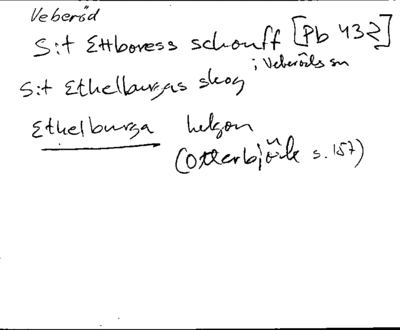 Veberöd
S:t Ettboress schouff [Pb 432]
i Veberöds sn
S:t Ethelburgas skog
Ethelburga helgon
(Otterbjörk s. 157)